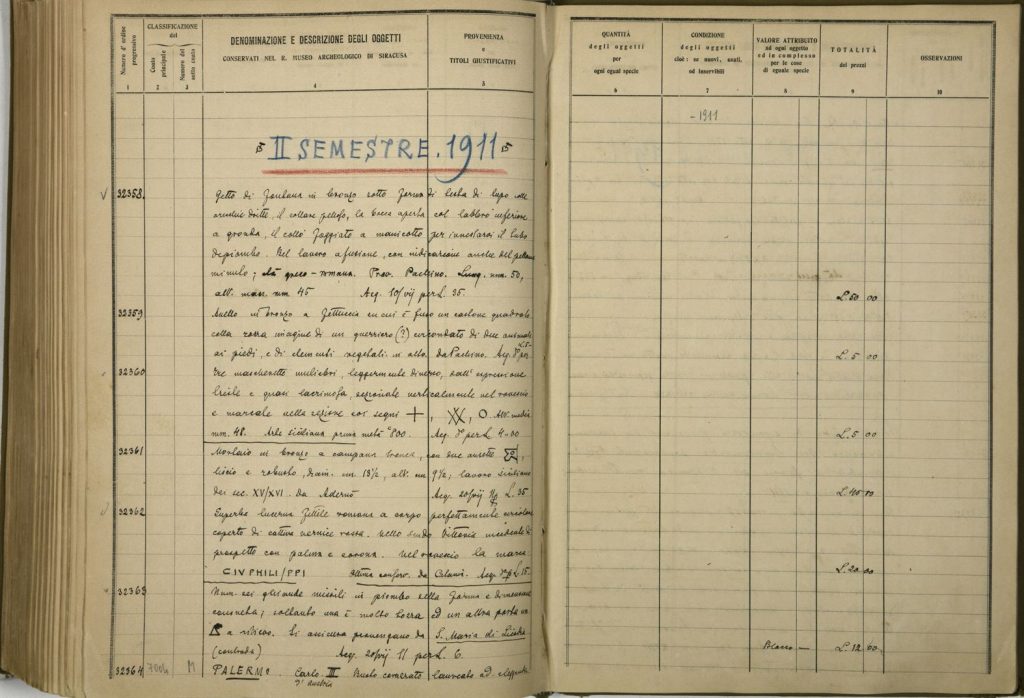 Numero d'ordine progressivo
CLASSIFICAZIONE
del
Conto principale
Numero del sotto conto
DENOMINAZIONE E DESCRIZIONE DEGLI OGGETTI
CONSERVATI NEL R. MUSEO ARCHEOLOGICO DI SIRACUSA
PROVENIENZA
e
TITOLI GIUSTIFICATIVI
1 2 3 4 5
II SEMESTRE. 1911
32358. Getto di fontana in bronzo sotto forma di testa di lupo colle
orecchie dritte, il collare, la bocca aperta col labbro inferiore
a gronda, il collo foggiato a manicotto per innestarvi il tubo
di piombo. Bel lavoro a fusione, con indicazione anche del pelame
minuto; età greco-romana. Prov. Pachino. Lung. mm. 50,
alt. mass. mm 45 Acq. 10/vij per L. 35.
32359 Anello in bronzo a fettuccia su cui è fuso un castone quadrato
colla rozza imagine di un guerriero (?) circondato di due animali
ai piedi, e di elementi vegetali in alto. Da Pachino. Acq. per L. 5
32360 Tre mascherette muliebri, leggermente diverse, dall'espressione
triste e quasi lacrimosa, sezionate verticalmente nel rovescio
e marcate nella sezione coi segni +, , O. Alt. media
mm. 48. Arte siciliana prima metà 800. Acq. per L. 4.00
32361 Mortaio in bronzo a campana, con due ansette,
liscio e robusto, diam. cm 13½, alt. cm 9½; lavoro siciliano
del sec. XV/XVI. da Adernò Acq. 20/vij L. 35
32362 Superba lucerna fittile romana a corpo perfettamente circolare
coperto di cattiva vernice rossa. Nello scudo Vittoria incedente di
prospetto con palma e corona. Nel rovescio la marca
CIVPHILI/PPI Ottima conserv. Da Catania. Acq. L. 15
32363 Num. sei ghiande missili in piombo della forma e dimensione
consueta; soltanto una è molto logora ed un'altra porta un
a rilievo. Si assicura provengano da S. Maria di Licodia
(contrada) Acq. 20/vij 11 per L. 6.
32364 7004 M PALERMO. Carlo III Busto corazzato laureato ad.
3° Austria
QUANTITÀ
degli oggetti
per
ogni egual specie
CONDIZIONE
degli oggetti
cioè: se nuovi, usati,
od inservibili
VALORE ATTRIBUITO
ad ogni oggetto
od in complesso
per le cose
di eguale specie
TOTALITÀ
dei prezzi
OSSERVAZIONI
6 7 8 9 10
- 1911
L. 50 00
L. 5 00
L. 5 00
L. 20 00
L. 12 00